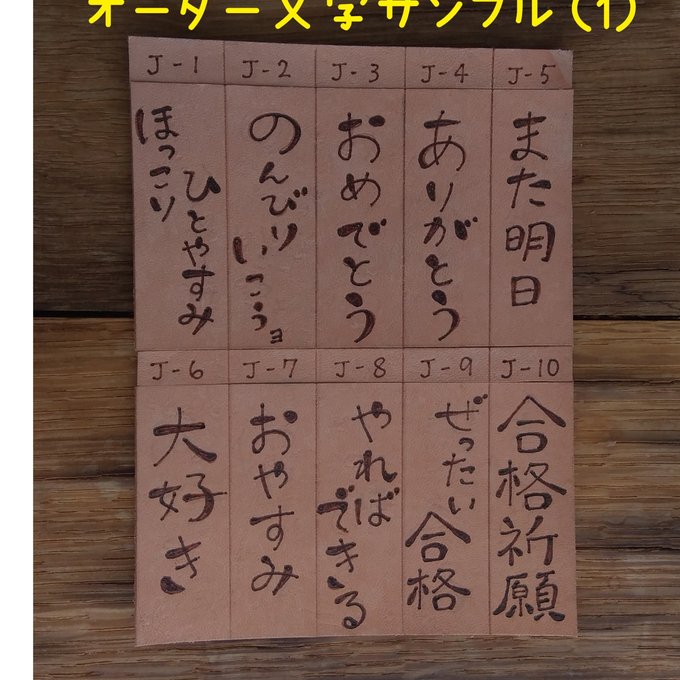 オーダー文字サンプル(1)
J-1
ほっこり
ひとやすみ
J-2
のんびり
いこうョ
J-3
おめでとう
J-4
ありがとう
J-5
また明日
J-6
大好き
J-7
おやすみ
J-8
やれば
できる
J-9
ぜったい
合格
J-10
合格祈願